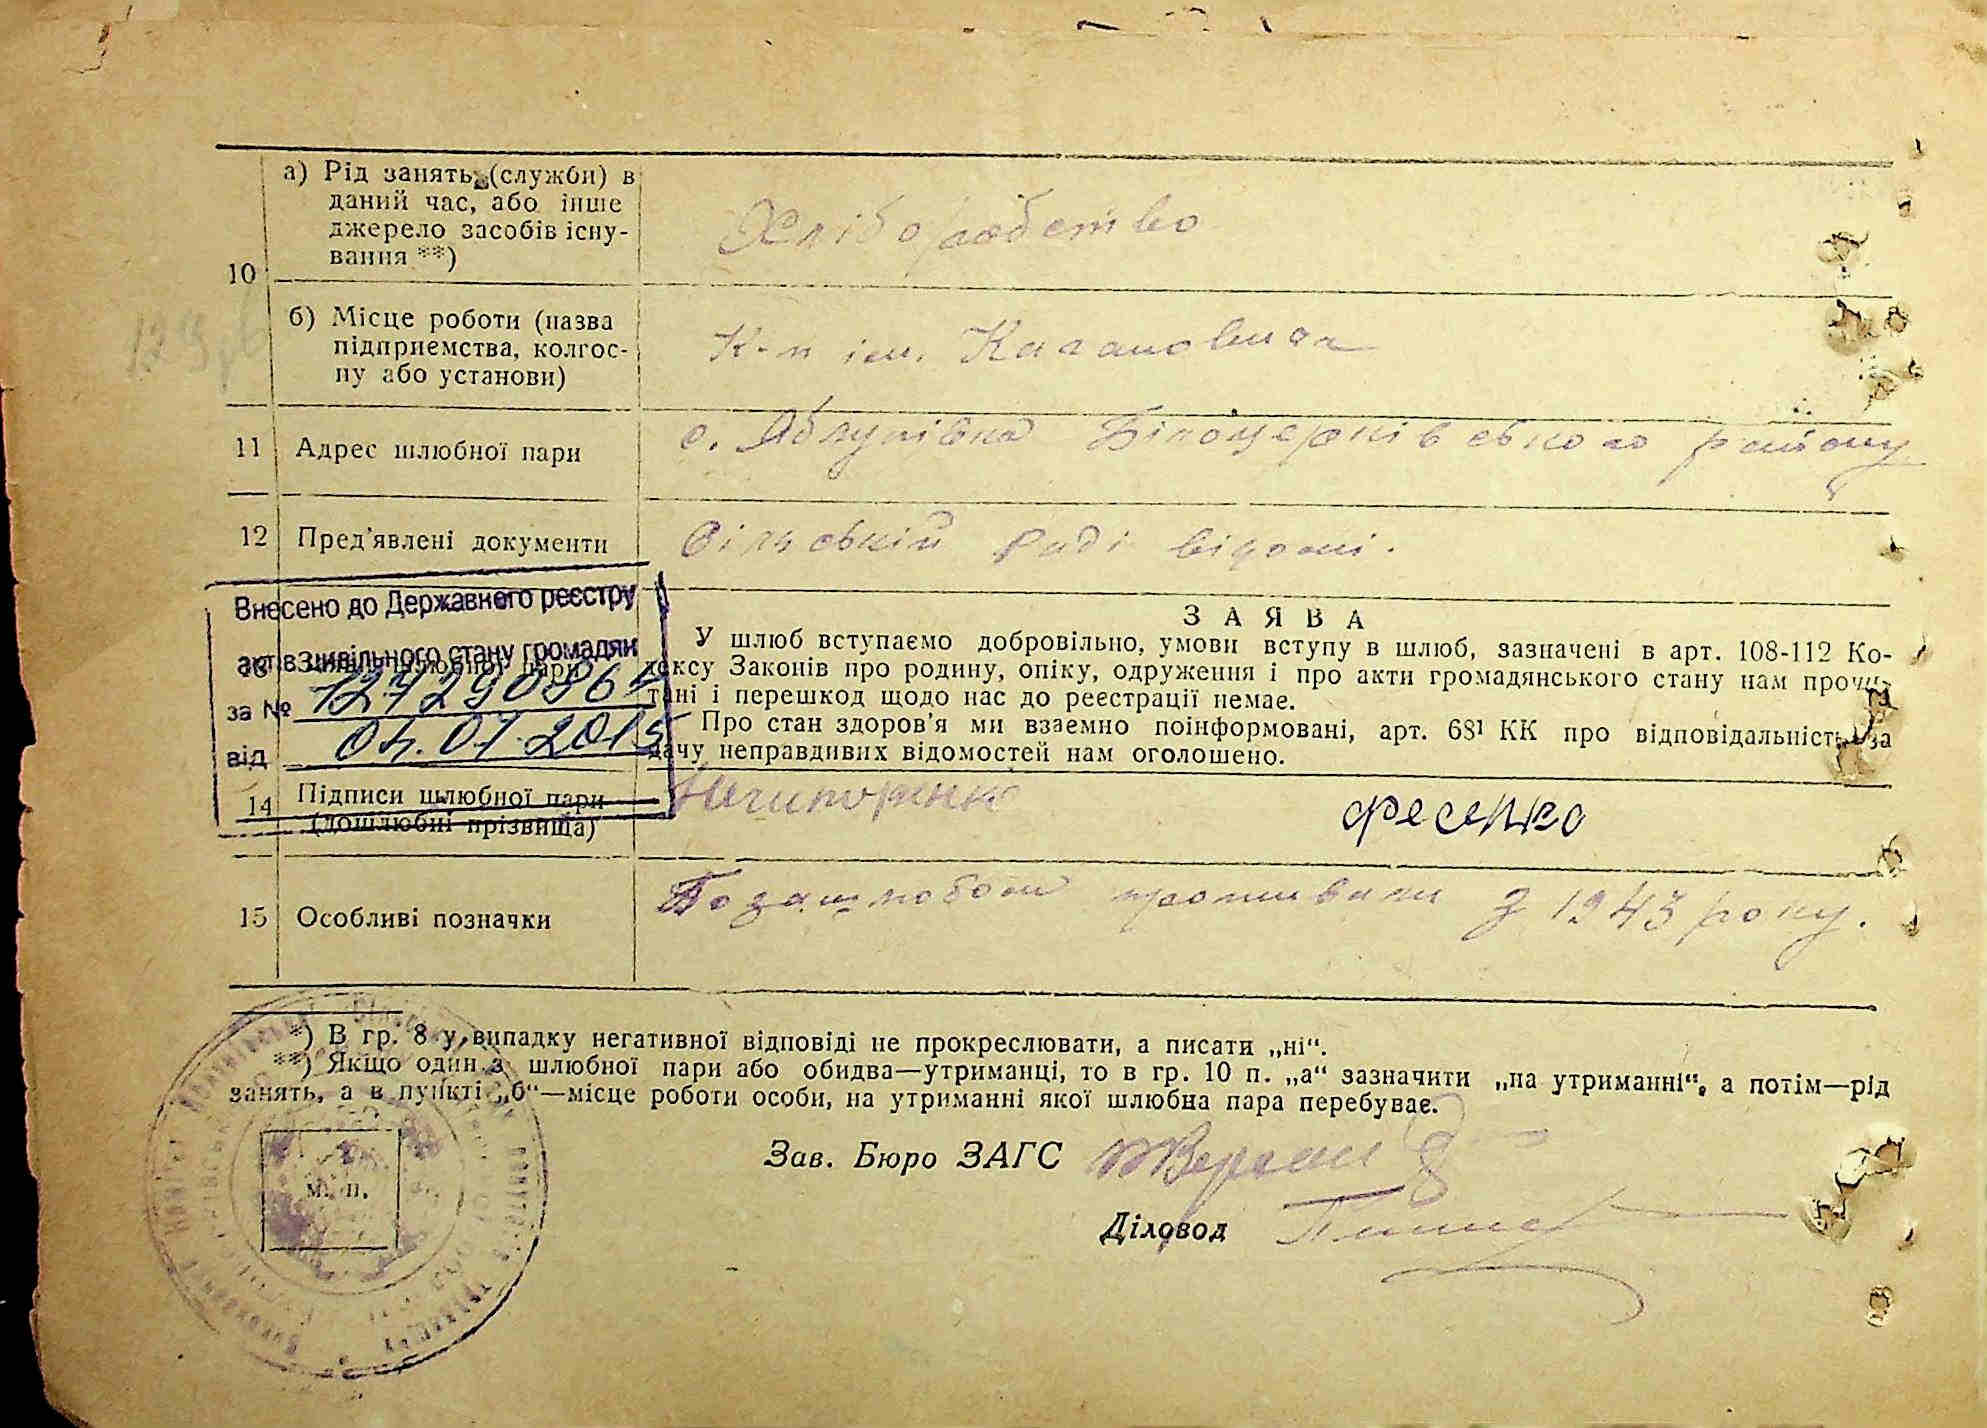 а) Рід занять (служби) в
даний час, або інше
джерело засобів існу-
вання **)
Хліборобство
10
б) Місце роботи (назва
підприємства, колгос-
пу або установи)
К-п ім. Кагановича
11 Адрес шлюбної пари
с. Яблунівка Білоцерківського району
12 Пред'явлені документи
Сільській раді відомі.
Внесено до Державного реєстру
актів цивільного стану громадян
за №
від 04.07.2015
З А Я В А
У шлюб вступаємо добровільно, умови вступу в шлюб, зазначені в арт. 108-112 Ко-
дексу Законів про родину, опіку, одруження і про акти громадянського стану нам прочи-
тані і перешкод щодо нас до реєстрації немає.
Про стан здоров'я ми взаємно поінформовані, арт. 68¹ КК про відповідальність за
дачу неправдивих відомостей нам оголошено.
14 Підписи шлюбної пари
(дошлюбні прізвища)
Ничипоренко Фесенко
15 Особливі позначки
Поза шлюбом проживали з 1943 року.
*) В гр. 8 у випадку негативної відповіді не прокреслювати, а писати „ні“.
**) Якщо один з шлюбної пари або обидва—утриманці, то в гр. 10 п. „а“ зазначити „на утриманні“, а потім—рід
занять, а в пункті „б“—місце роботи особи, на утриманні якої шлюбна пара перебуває.
Зав. Бюро ЗАГС
м. п.
Діловод